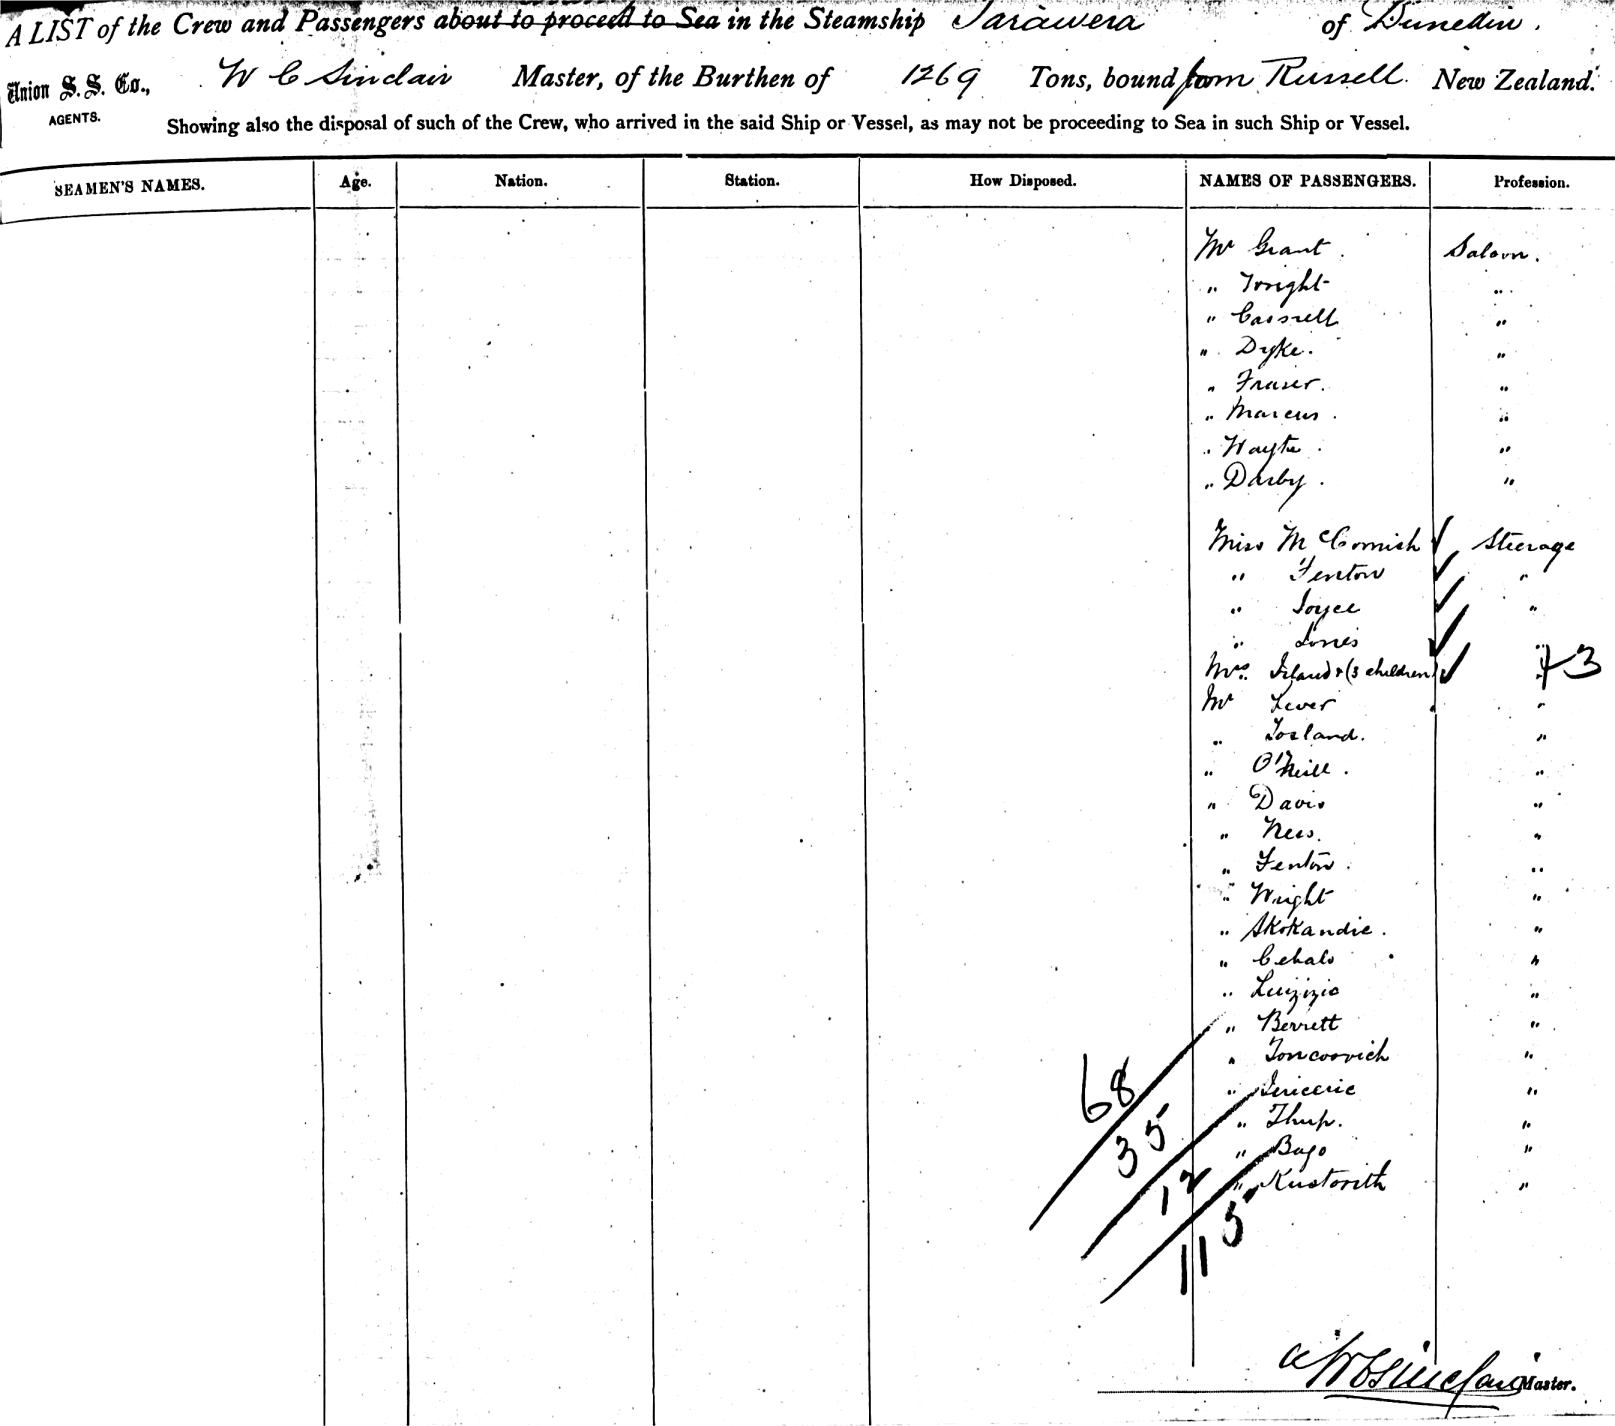 A LIST of the Crew and Passengers about to proceed to Sea in the Steamship Tarawera of Dunedin.
Union S. S. Co., W C Sinclair Master, of the Burthen of 1269 Tons, bound from Russell New Zealand.
AGENTS.
Showing also the disposal of such of the Crew, who arrived in the said Ship or Vessel, as may not be proceeding to Sea in such Ship or Vessel.
SEAMEN'S NAMES. Age. Nation. Station. How Disposed. NAMES OF PASSENGERS. Profession.
Mr Grant. Saloon.
" "
" "
" Dyke. "
" Fraser. "
" Marcus. "
" Hayte. "
" Darby. "
Miss McCornish ✓ Steerage
" Fenton ✓ "
" Joyce ✓ "
" Jones ✓ "
Mrs. (3 children) ✓ " +3
Mr Lever "
" "
" O'Neill. "
" Davis "
" Nees. "
" Fenton. "
" Wright "
" Skokandic. "
" "
" "
" Berrett "
" "
" "
" "
" "
" "
68
35
12
115
W C Sinclair Master.